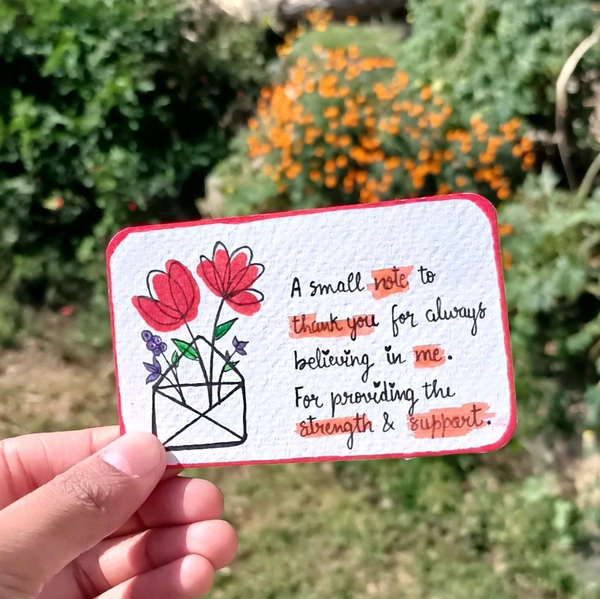 A small note to
thank you for always
believing in me.
For providing the
strength & support.